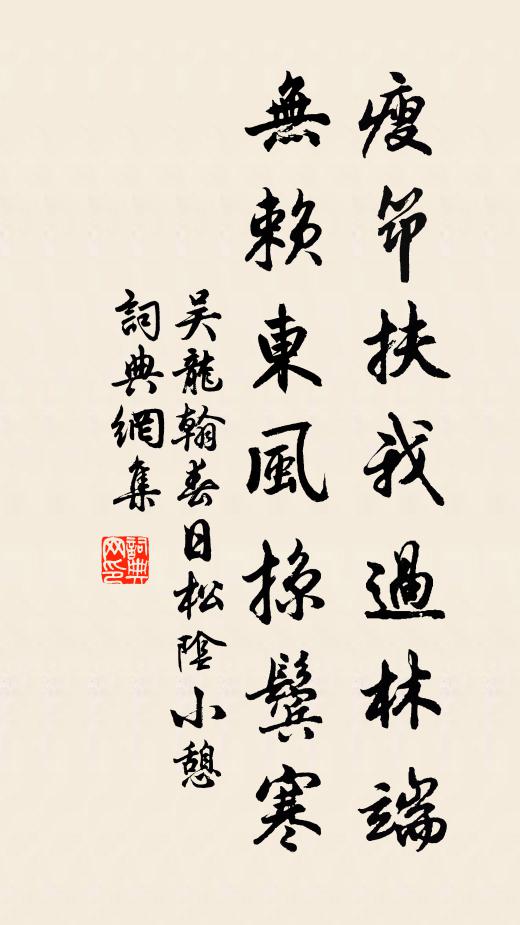 瘦筇扶我過林端
無賴東風掠鬢寒
吴龍翰春日松陰小憩
詞典網集
詞典
网印